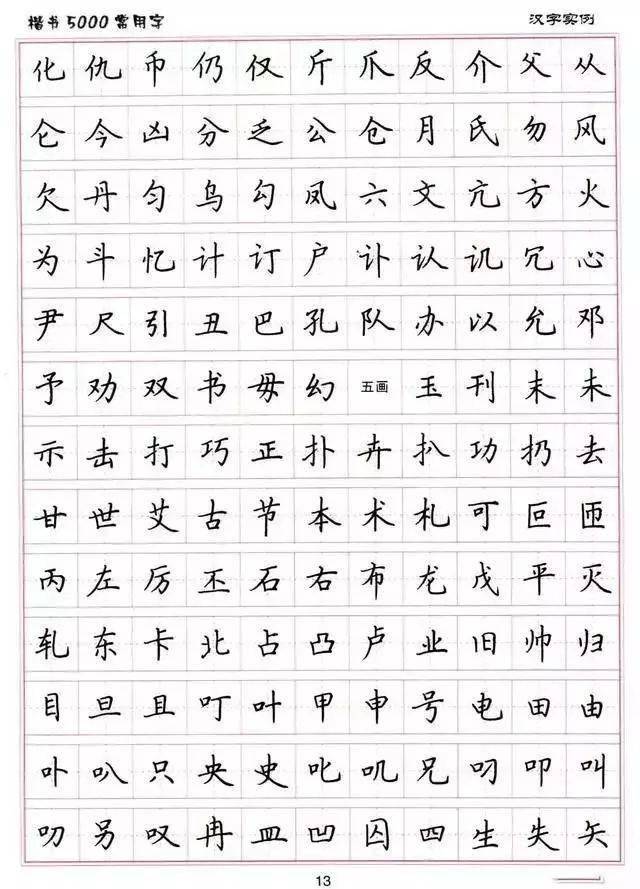 楷书5000常用字 汉字实例
化仇币仍仅斤爪反介父从
仑今凶分乏公仓月氏勿风
欠丹匀乌勾凤六文亢方火
为斗忆计订户讣认讥冗心
尹尺引丑巴孔队办以允邓
予劝双书毋幻五画玉刊末未
示击打巧正扑卉扒功扔去
甘世艾古节本术札可叵匝
丙左厉丕石右布龙戊平灭
轧东卡北占凸卢业旧帅归
目旦且叮叶甲申号电田由
卟叭只央史叱叽兄叼叩叫
叨另叹冉皿凹囚四生失矢
13